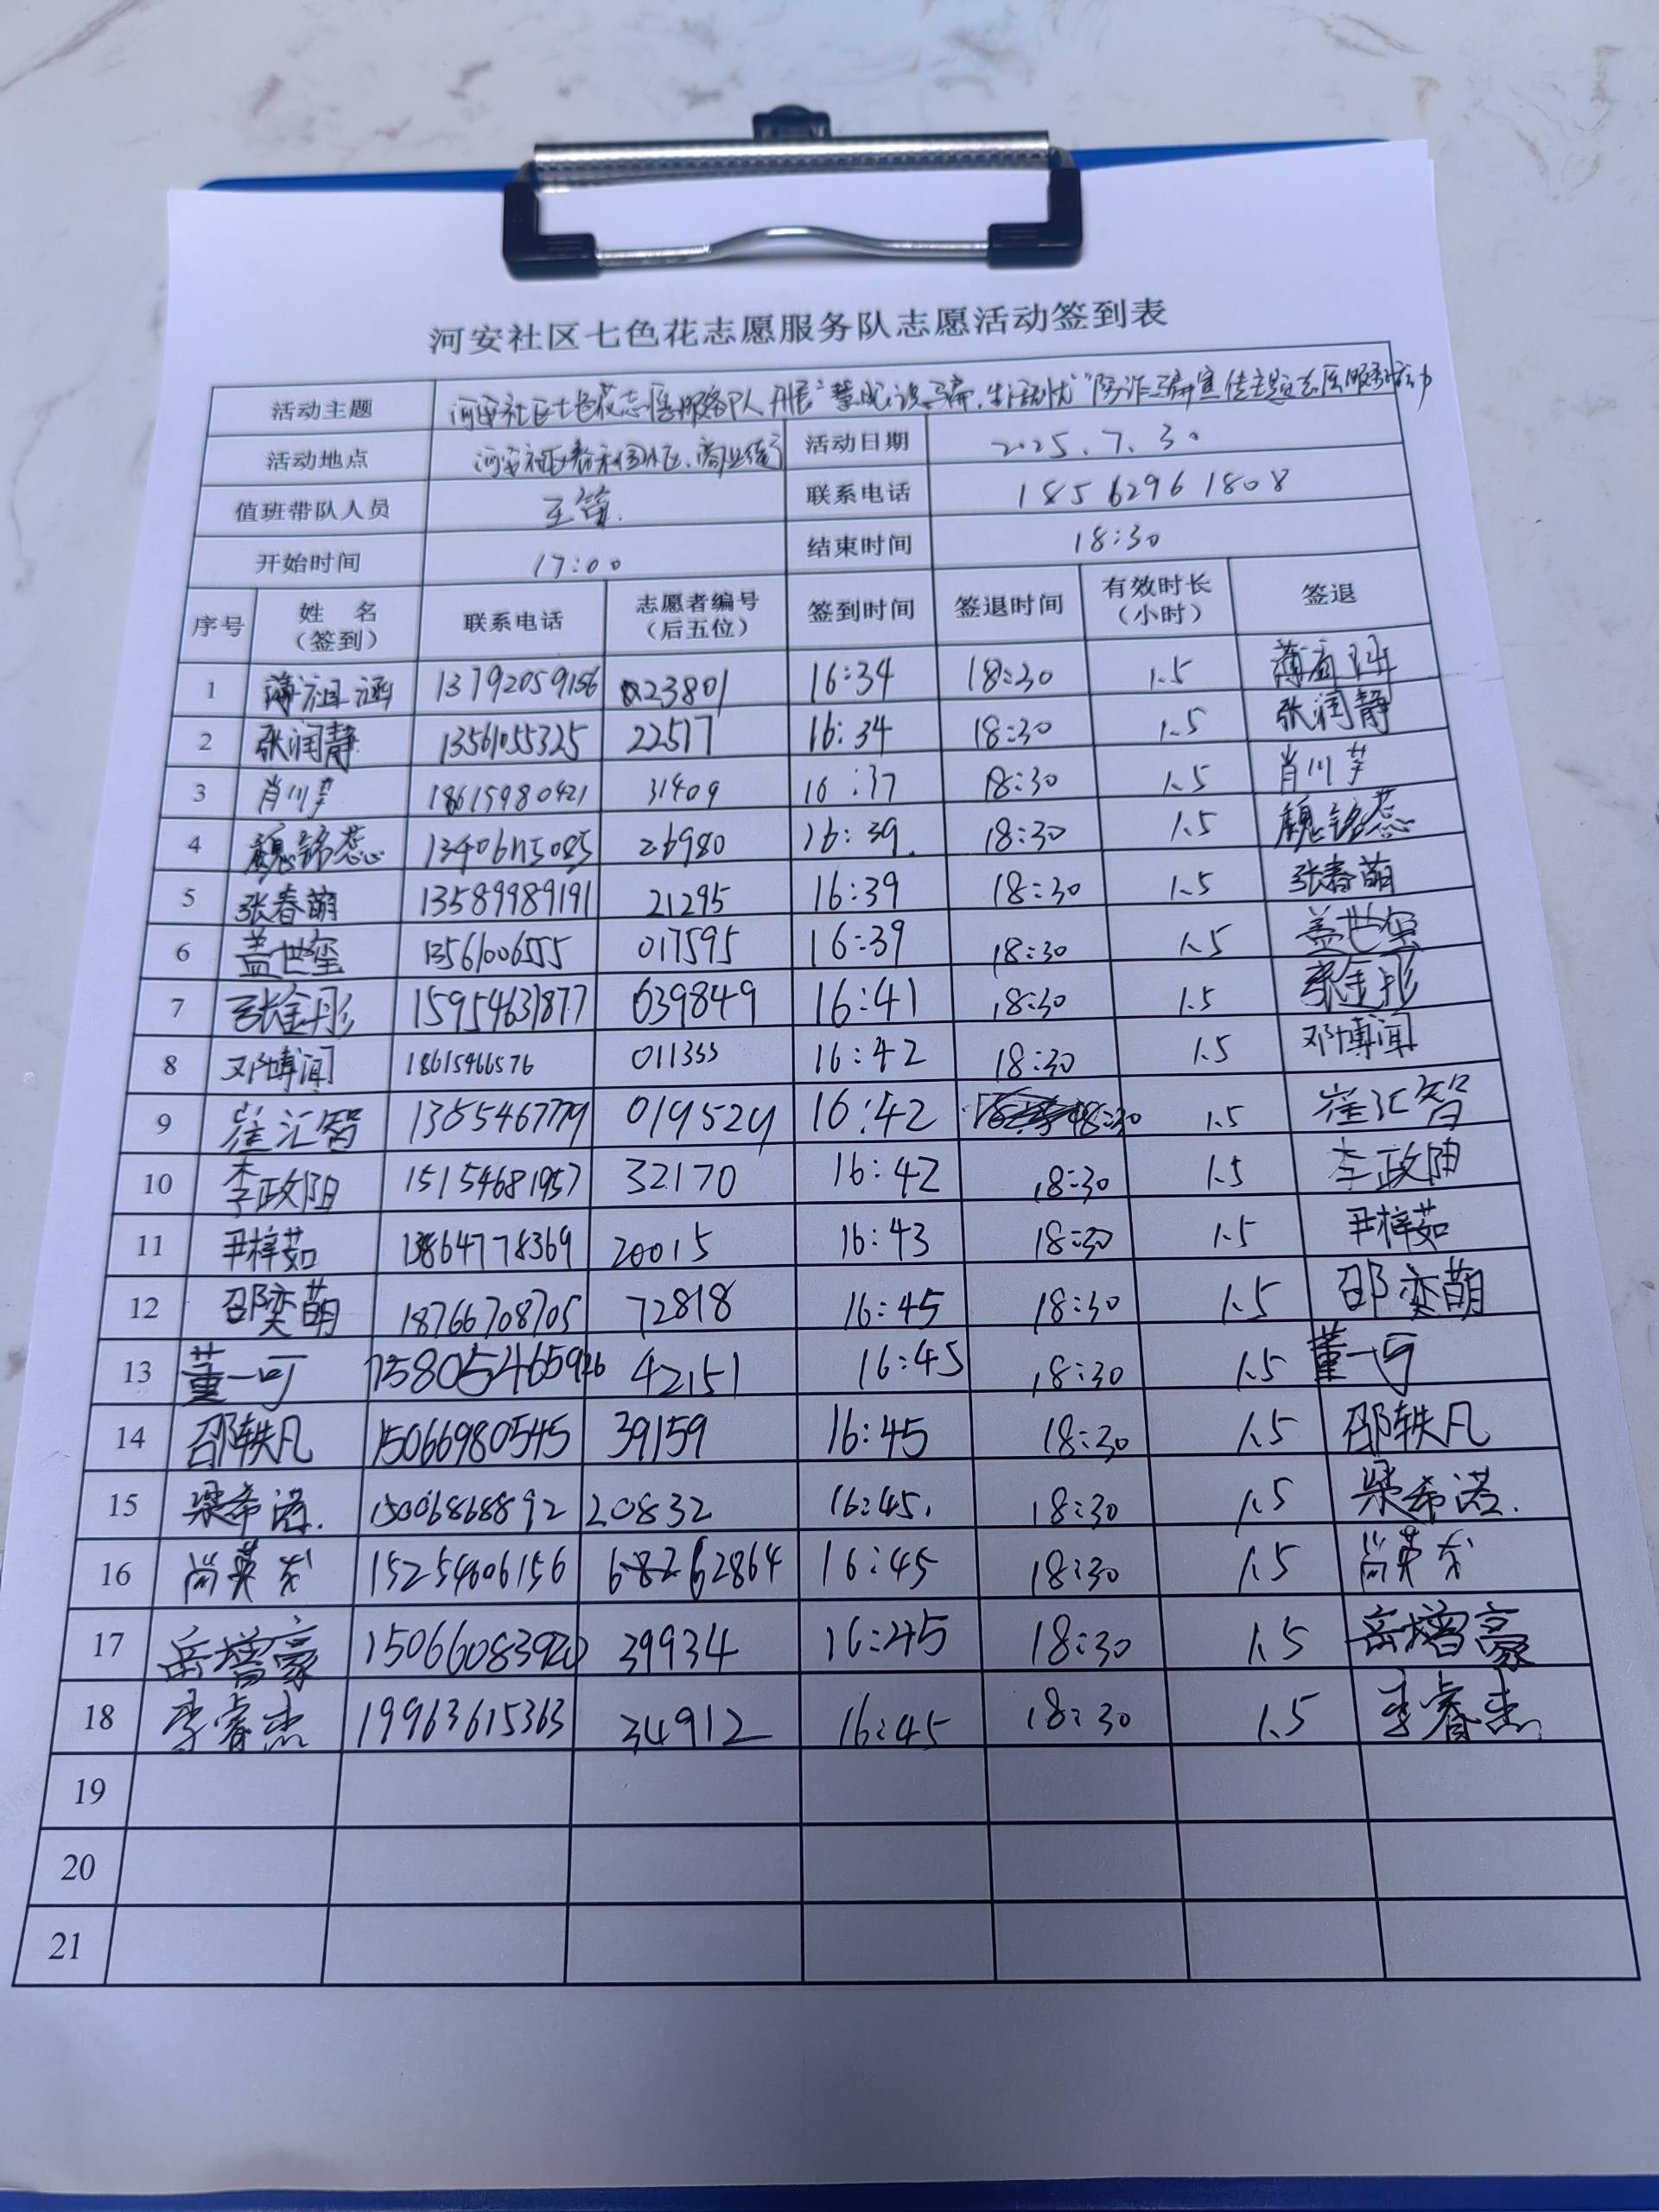 河安社区七色花志愿服务队志愿活动签到表
活动主题 河安社区七色花志愿服务队开展"慧眼识骗,生活无忧"防诈骗宣传主题志愿服务活动
活动地点 河安社区 小区、商业街 活动日期 2025.7.30
值班带队人员 王 联系电话 18562961808
开始时间 17:00 结束时间 18:30
序号 姓 名（签到） 联系电话 志愿者编号（后五位） 签到时间 签退时间 有效时长（小时） 签退
1 薄 涵 13792059156 23801 16:34 18:30 1.5 薄
2 张润静 13561055325 22517 16:34 18:30 1.5 张润静
3 肖川 18615980421 31409 16:37 18:30 1.5 肖川
4 魏铭蕊 26980 16:39 18:30 1.5 魏铭蕊
5 张春萌 13589989191 21295 16:39 18:30 1.5 张春萌
6 盖世玺 13561006555 017595 16:39 18:30 1.5 盖世玺
7 张金彤 15954631877 039849 16:41 18:30 1.5 张金彤
8 邓博闻 18615466576 011333 16:42 18:30 1.5 邓博闻
9 崔汇智 019529 16:42 18:30 1.5 崔汇智
10 李政阳 15154681957 32170 16:42 18:30 1.5 李政阳
11 尹梓茹 13864778369 20015 16:43 18:30 1.5 尹梓茹
12 邵奕萌 18766708705 72818 16:45 18:30 1.5 邵奕萌
13 董一可 42151 16:45 18:30 1.5 董一可
14 邵轶凡 15066980545 39159 16:45 18:30 1.5 邵轶凡
15 梁希诺. 15006868892 20832 16:45. 18:30 1.5 梁希诺.
16 尚英 15254606156 16:45 18:30 1.5 尚英
17 岳增豪 15066083920 39934 16:45 18:30 1.5 岳增豪
18 李睿杰 19963615363 34912 16:45 18:30 1.5 李睿杰
19
20
21